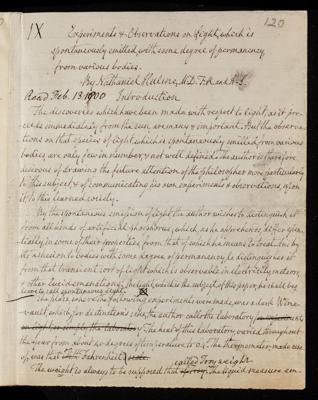 120
IX
Experiments & Observations on Light, which is
spontaneously emitted, with some degree of permanency
from various bodies.
By Nathaniel Hulme, M.D. F.R. and A.S.
Read Feb. 13. 1800 Introduction
The discoveries which have been made with respect to light, as it pro-
ceeds immediately from the sun, are many & important. But the observa-
tions on that species of light, which is spontaneously emitted from various
bodies, are only few in number, & not well defined. The author is therefore
desirous of drawing the future attention of the philosopher more particularly
to this subject, & of communicating his own experiments & observations upon
it, to this learned society.
By the spontaneous emission of light the author wishes to distinguish it
from all kinds of artificial phosphorus, which, as he apprehends, differ essen-
tially, in some of their properties, from that of which he means to treat. And by
its adhesion to bodies with some degree of permanency, he distinguishes it
from that transient sort of light which is observable in electricity, meteors,
& other lucid emanations. The light, which is the subject of this paper, he shall beg
leave to call spontaneous light.
The place where the following experiments were made, was a dark Wine-
vault, which for distinction's sake, the author calls the laboratory
The heat of this laboratory varied throughout
the year from about 40 degrees of temperature to 64. The thermometer made use
of, was that Fahrenheit
called Troy weight
The weight is always to be supposed that The liquid measure, em-